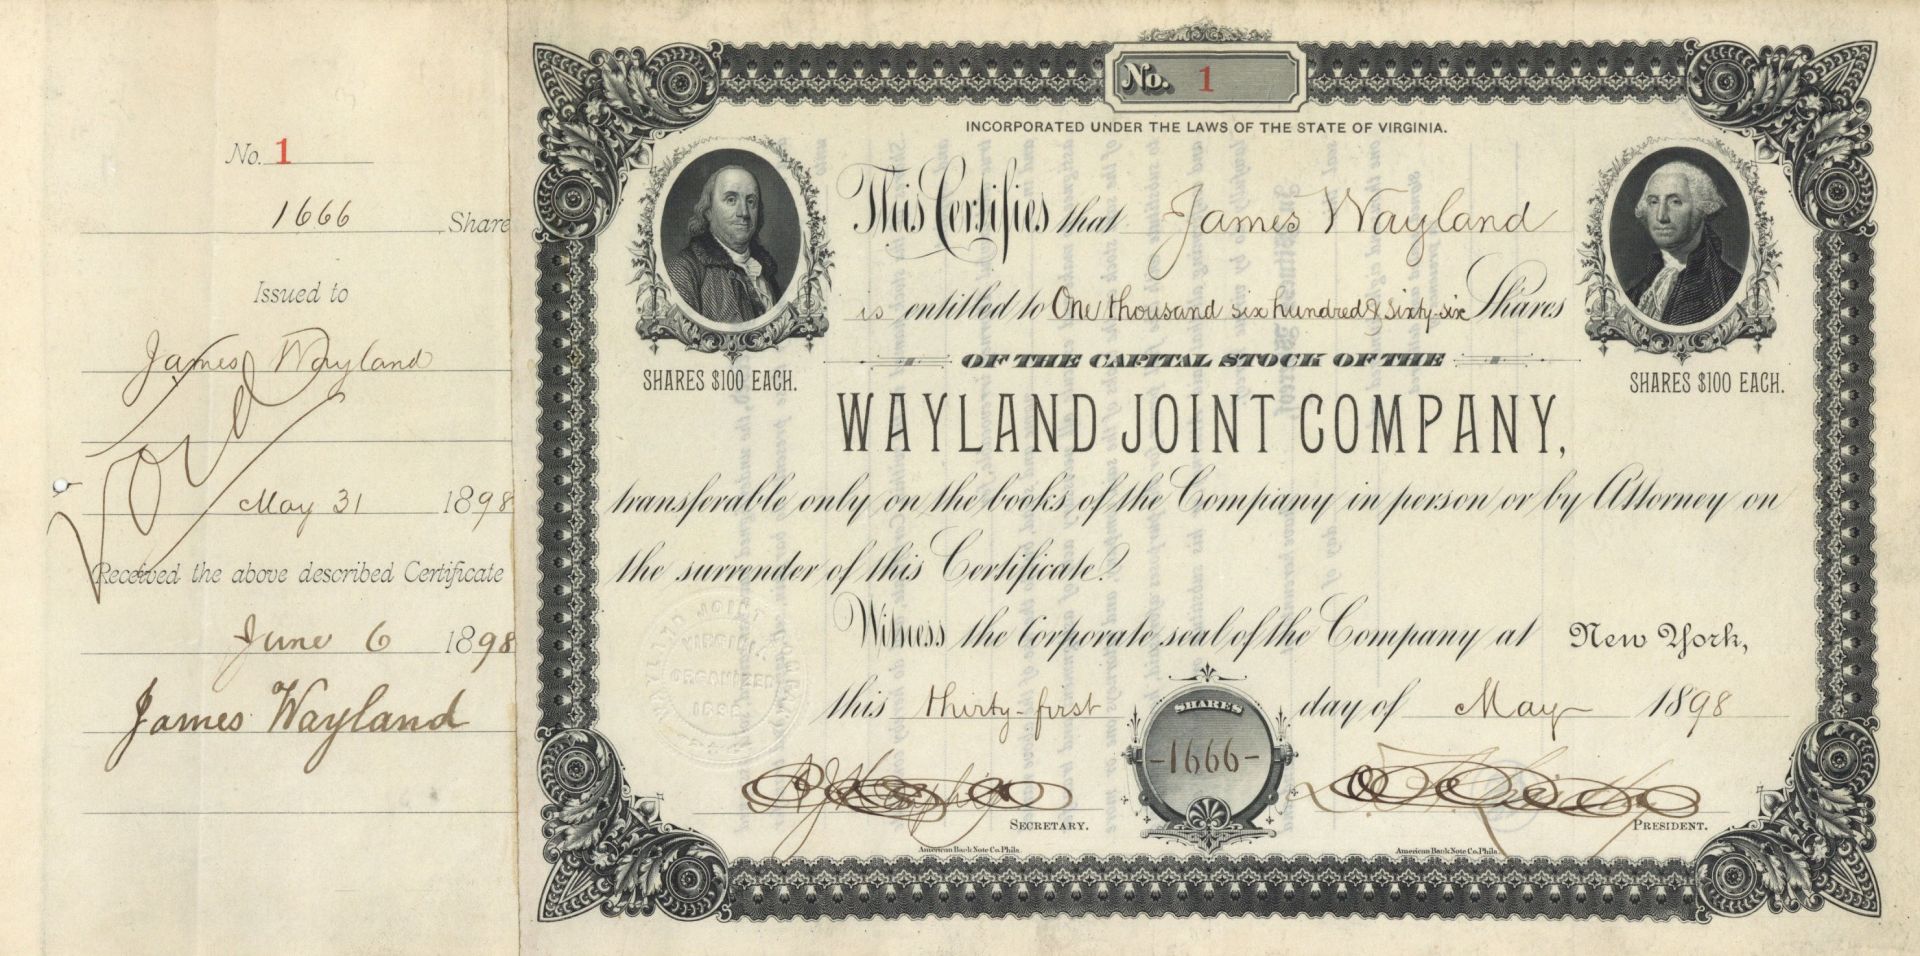 No. 1
1666 Share
Issued to
James Wayland
Void
May 31 1898
Received the above described Certificate
June 6 1898
James Wayland
No. 1
INCORPORATED UNDER THE LAWS OF THE STATE OF VIRGINIA.
This Certifies that James Wayland
is entitled to One thousand six hundred & sixty-six Shares
OF THE CAPITAL STOCK OF THE
SHARES $100 EACH.
SHARES $100 EACH.
WAYLAND JOINT COMPANY,
transferable only on the books of the Company in person or by Attorney on
the surrender of this Certificate.
Witness the Corporate seal of the Company at New York,
this thirty-first day of May 1898
SHARES
-1666-
SECRETARY.
PRESIDENT.
American Bank Note Co. Phila.
American Bank Note Co. Phila.
WAYLAND JOINT COMPANY
VIRGINIA
ORGANIZED
1898